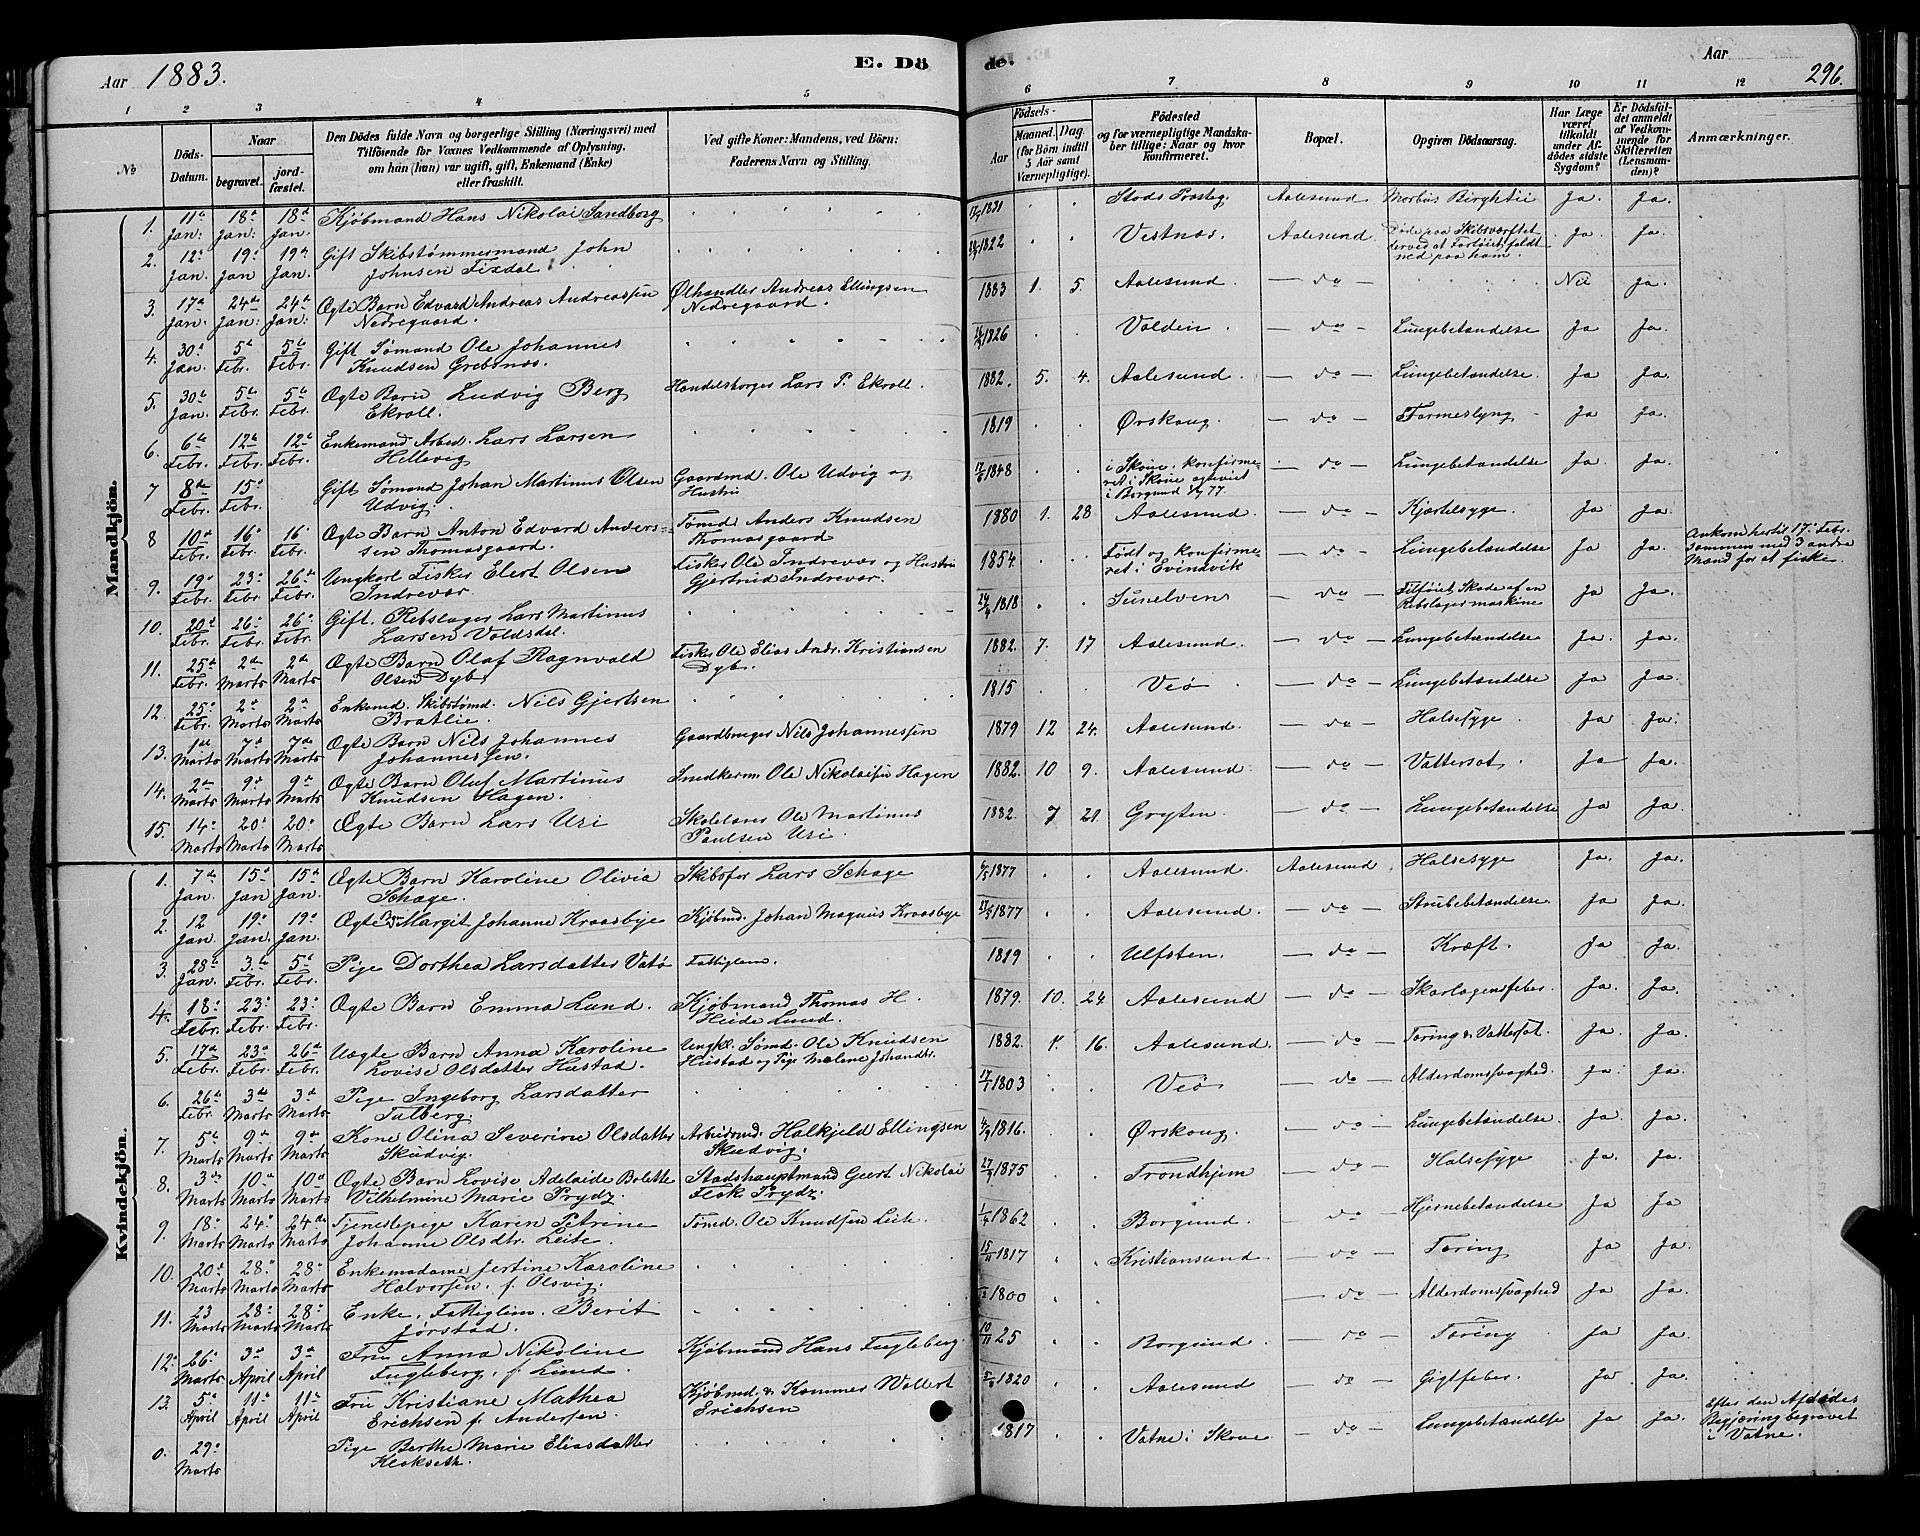 Aar 1883.
E. Dö
de.
Aar
296.
1 2 3 4 5 6 7 8 9 10 11 12
No
Döds-Datum.
Naar
begravet.
jord-fæstet.
Den Dödes fulde Navn og borgerlige Stilling (Næringsvei) med
Tilföiende for Voxnes Vedkommende af Oplysning,
om hun (han) var ugift, gift, Enkemand (Enke)
eller fraskilt.
Ved gifte Koner: Mandens, ved Börn:
Faderens Navn og Stilling.
Födsels-
Aar
Maaned. Dag.
(for Börn indtil
5 Aar samt
Værnepligtige).
Födested
og for værnepligtige Mandska-
ber tillige: Naar og hvor
konfirmeret.
Bopæl.
Opgiven Dödsaarsag.
Har Læge
været
tilkaldt
under Af-
dödes sidste
Sygdom?
Er Dödsfal-
det anmeldt
af Vedkom-
mende for
Skifteretten
(Lensman-
den)?
Anmærkninger.
Mandkjön.
1. 11te Jan: 18de Jan: 18de Jan. Kjöbmand Hans Nikolai Sandborg 1831 Stods Prosteg. Aalesund Morbus Brightii Ja. Ja.
2. 12te Jan. 19de Jan 19de Jan. Gift Skibstømmermand John
Johnsen Fixdal. 1822 Vestnæs. Aalesund. Døde paa Skibsværftet
derved at Fartøiet feldt
ned paa ham. Ja. Ja.
3. 17de Jan. 24de Jan: 24de Jan: Ægte Barn Edvard Andreas Andreassen
Nedregaard. Ølhandler Andreas Ellingsen
Nedregaard. 1883 1. 5. Aalesund. do Nei Ja.
4. 30te Jan. 5te Febr. 5te Febr. Gift Sømand Ole Johannes
Knudsen Grebsnæs. 1826 Volden. do Lungebetændelse Ja Ja.
5. 30te Jan. 5te Febr. 5te Febr. Ægte Barn Ludvig Berg
Ekroll. Handelsborger Lars P. Ekroll. 1882. 5. 4. Aalesund. do Lungebetændelse. Ja Ja.
6. 6te Febr. 12te Febr. 12te Febr. Enkemand Arbed. Lars Larsen
Hellevig 1819 Ørskoug. do Tarmeslyng Ja Ja.
7 8de Febr. 15de Febr. Gift Sømand Johan Martinus Olsen
Udvig. Gaardmd. Ole Udvig og
Hustru 1848 i Skoue. konfirme-
ret i Skoue og viet
i Borgund 77. do Lungebetændelse Ja. Ja.
8 10de Febr. 16de Febr. 16 Febr. Ægte Barn Anton Edvard Anders-
sen Thomasgaard. Tømd. Anders Knudsen
Thomasgaard 1880 1. 28 Aalesund. do Kjertelsyge. Ja Ja.
9. 19de Febr. 23de Febr. 26de Febr. Ungkarl Fisker Elert Olsen
Indrevær Fisker Ole Indrevær og Hustru
Gjertrud Indrevær. 1854. Født og konfirme-
ret i Evindvik do Lungebetændelse Ja Ja. Ankom hertil 17. Febr.
sammen med 3 andre
Mænd for at fiske.
10. 20de Febr. 26de Febr. 26de Febr. Gift. Rebslager Lars Martinus
Larsen Voldsdal. 1818 Sunelven do Tilføiet Skade af en
Rebslagermaskine Ja Ja.
11. 25de Febr. 2den Marts 2den Marts Ægte Barn Olaf Ragnvald
Olsen Dyb. Fisker Ole Elias Andr. Kristiansen
Dyb. 1882. 7. 17 Aalesund. do Lungebetændelse Ja. Ja.
12. 25de Febr. 2den Marts 2den Marts Enkemd. Skibstømd. Nils Gjertsen
Bratlie. 1815 Veø do Lungebetændelse Ja Ja.
13. 1ste Marts 7de Marts 7de Marts Ægte Barn Nils Johannes
Johannessen. Gaardbruger Nils Johannessen 1879 12 24. Aalesund do Halsesyge. Ja Ja.
14. 2den Marts 9de Marts 9de Marts Ægte Barn Oluf Martinus
Knudsen Hagen. Snedkerm. Ole Nikolaisen Hagen 1882. 10 9. Aalesund do Vattersot. Ja Ja.
15. 14de Marts 20de Marts 20de Marts Ægte Barn Lars Uri Skolelærer Ole Martinus
Paulsen Uri. 1882 7 21 Gryten. do Lungebetændelse Ja Ja.
Kvindekjön.
1. 7de Jan 15de Jan 15de Jan. Ægte Barn Karoline Olivia
Schage. Skibsfør Lars Schage 1877 Aalesund. Aalesund. Halsesyge Ja. Ja.
2. 12 Jan. 19de Jan. 19de Jan. Ægte Barn Margit Johanne Kraasbye Kjöbmd. Johan Magnus Kraasbye 1877 Aalesund. do Strubebetændelse. Ja Ja.
3. 28de Jan. 3de Febr. 5te Febr. Pige Dorthea Larsdatter Vatø Fattiglem. 1819 Ulfsten. do Kræft. Ja Ja.
4. 18de Febr. 23de Febr. 23de Febr. Ægte Barn Emma Lund. Kjöbmand Thomas H.
Heide Lund. 1879. 10. 24 Aalesund do Skarlagensfeber. Ja. Ja.
5. 17de Febr. 23de Febr. 26de Febr. Uægte Barn Anna Karoline
Lovise Olsdatter Hustad. Ungkl. Sømd. Ole Knudsen
Hustad og Pige Malene Johandtr. 1882 16. Aalesund. do Tæring & Vattersot. Ja. Ja.
6. 26de Febr. 3de Marts 3de Marts Pige Ingeborg Larsdatter
Talberg. 1803 Veø do Alderdomssvaghed. Ja. Ja.
7. 5te Marts 9de Marts 9de Marts Kone Olina Severine Olsdatter
Skudvig. Arbeidsmd. Halkjeld Ellingsen
Skudvig. 1816. Ørskoug. do Lungebetændelse Ja. Ja.
8. 3de Marts 10de Marts 10de Marts Ægte Barn Lovise Adelaide Bolette
Vilhelmine Marie Prydz. Stadshauptmand Geert Nikolai
Flok Prydz. 1875 Trondhjem do Halsesyge Ja. Ja.
9. 18de Marts 24de Marts 24de Marts Tjenestepige Karen Petrine
Johanne Olsdtr. Leite. Tømd. Ole Knudsen Leite. 1862 Borgund. do Hjernebetændelse Ja Ja
10. 20de Marts 28de Marts 28de Marts Enkemadame Jertine Karoline
Halvorsen. f. Olsvig. 1817 Kristiansund do Tæring Ja Ja.
11. 23 Marts 28de Marts 28de Marts Enke. Fattiglem. Berit
Jørstad. 1800 do Alderdomssvaghed Ja Ja.
12. 26de Marts 3de April 3de April Fru Anna Nikoline
Fugleberg. f. Lund. Kjöbmand Hans Fugleberg. 25 Borgund. do Tæring Ja Ja.
13. 5te April 11te April 11te April Fru Kristiane Mathea
Erichsen f. Andersen. Kjöbmd. & Kæmner Wollert
Erichsen 1820 Aalesund do Gigtfeber. Ja. Ja.
0. 29de Marts Pige Berthe Marie Eliasdatter
Klokseth. 1817 Vatne i Skoue do Lungebetændelse Ja Ja. Efter den Afdødes
Begjæring begravet
i Vatne.